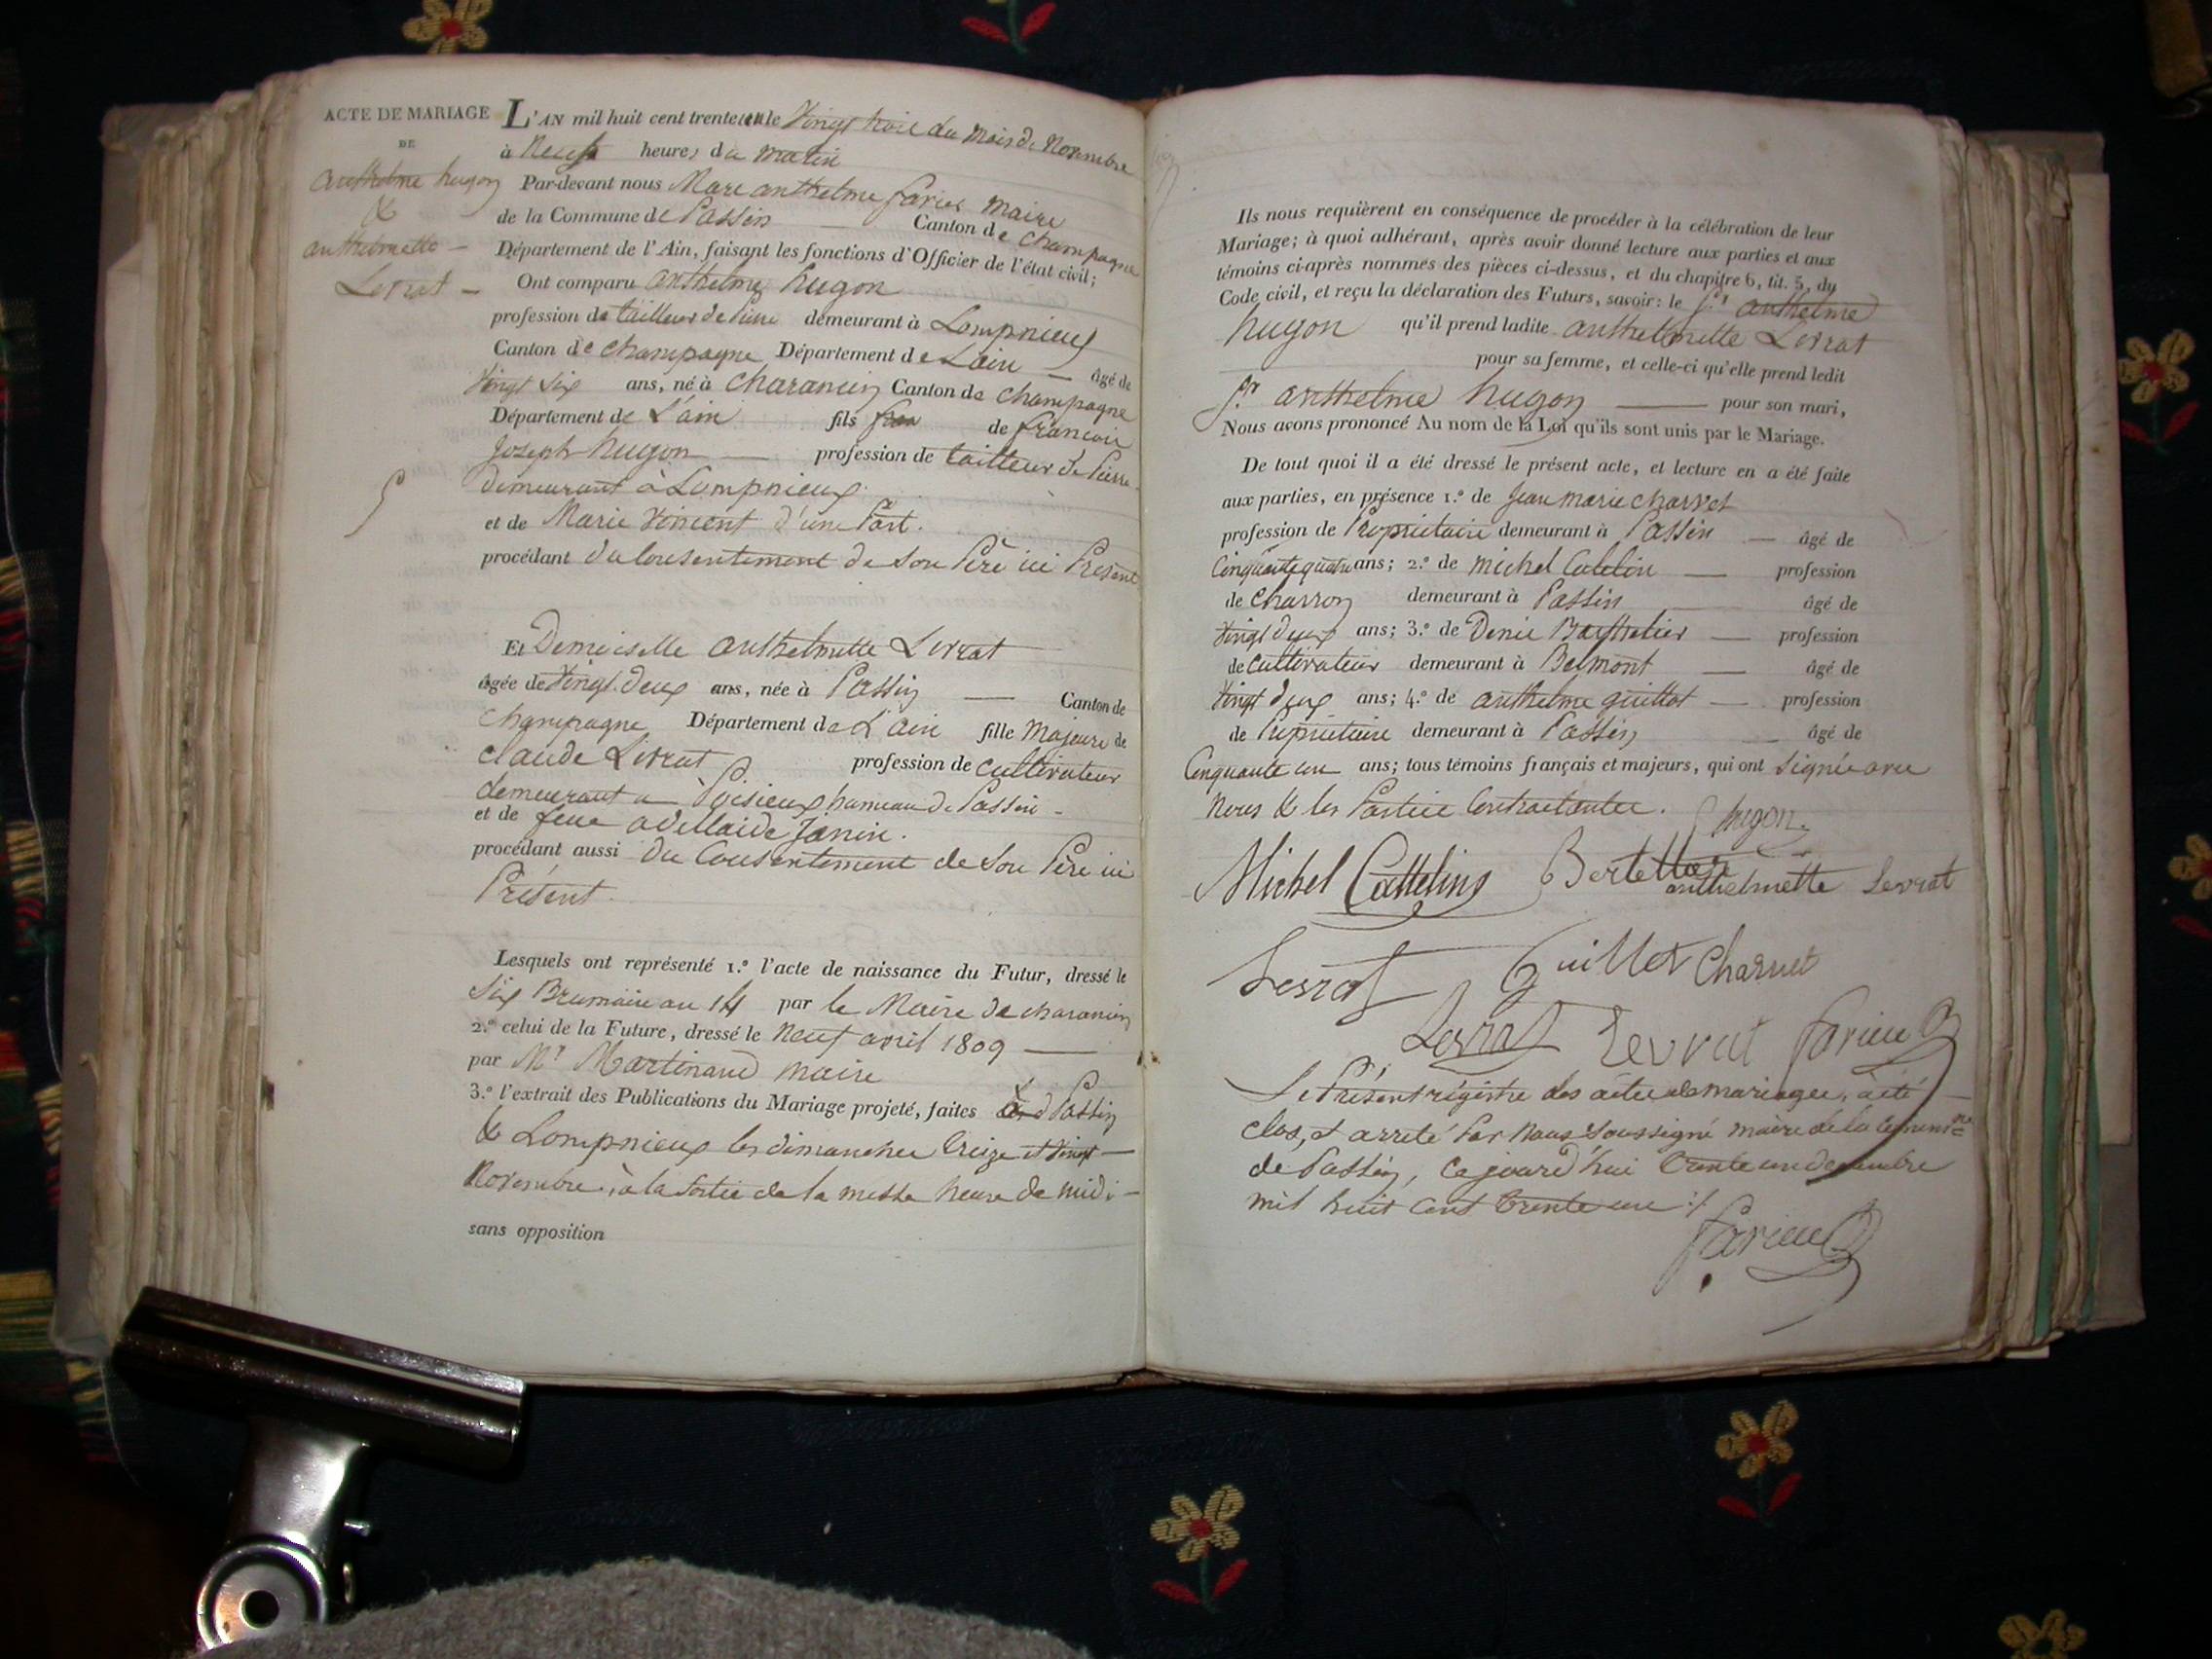 ACTE DE MARIAGE
DE
anthelme hugon
&
anthelmette -
Levrat -
L'AN mil huit cent trente un le Vingt trois du mois de Novembre
à Neuf heures du matin
Par-devant nous Marc anthelme favier maire
de la Commune de Passin — Canton de champagne
Département de l'Ain, faisant les fonctions d'Officier de l'état civil;
Ont comparu anthelme hugon
profession de tailleur de Pierre demeurant à Lompnieux
Canton de Champagne Département de L'ain — âgé de
Vingt Six ans, né à Charancin Canton de Champagne
Département de L'ain fils de francois
Joseph hugon — profession de tailleur de Pierre
demeurant à Lompnieux.
et de Marie Vincent d'une Part.
procédant du Consentement de Son Père ici Présent
Et Demoiselle anthelmette Levrat
âgée de Vingt-deux ans, née à Passin — Canton de
Champagne Département de L'ain fille Majeure de
Claude Levrat profession de Cultivateur
demeurant a Poisieux hameau de Passin -
et de feue adellaide Janin.
procédant aussi du Consentement de Son Père ici
Présent.
Lesquels ont représenté 1.° l'acte de naissance du Futur, dressé le
Six Brumaire an 14 par le Maire de charancin
2.° celui de la Future, dressé le Neuf avril 1809 —
par Mr Martinand maire
3.° l'extrait des Publications du Mariage projeté, faites à Passin
& Lompnieux les dimanches treize et Vingt —
Novembre, à la Sortie de la messe heure de midi -
sans opposition
Ils nous requièrent en conséquence de procéder à la célébration de leur
Mariage; à quoi adhérant, après avoir donné lecture aux parties et aux
témoins ci-après nommés des pièces ci-dessus, et du chapitre 6, tit. 5, du
Code civil, et reçu la déclaration des Futurs, savoir: le Sr anthelme
hugon qu'il prend ladite anthelmette Levrat
pour sa femme, et celle-ci qu'elle prend ledit
Sr anthelme hugon — pour son mari,
Nous avons prononcé Au nom de la Loi qu'ils sont unis par le Mariage.
De tout quoi il a été dressé le présent acte, et lecture en a été faite
aux parties, en présence 1.° de Jean marie charvet
profession de Propriétaire demeurant à Passin — âgé de
Cinquante quatre ans; 2.° de michel Catelin — profession
de Charron demeurant à Passin âgé de
Vingt deux ans; 3.° de Denis Barthelier — profession
de Cultivateur demeurant à Belmont — âgé de
Vingt deux ans; 4.° de anthelme guillot — profession
de Propriétaire demeurant à Passin — âgé de
Cinquante un ans; tous témoins français et majeurs, qui ont Signés avec
Nous & les Parties Contractantes. hugon
Michel Cattelins
anthelmette Levrat
Levrat Guillot Charvet
Levrat Levrat favier
Le Présent régistre des actes de mariages, a été —
clos, et arrêté Par Nous Soussigné maire de la commune
de Passin, Cejourd'hui trente un decembre
mil huit cent trente un :/
favier